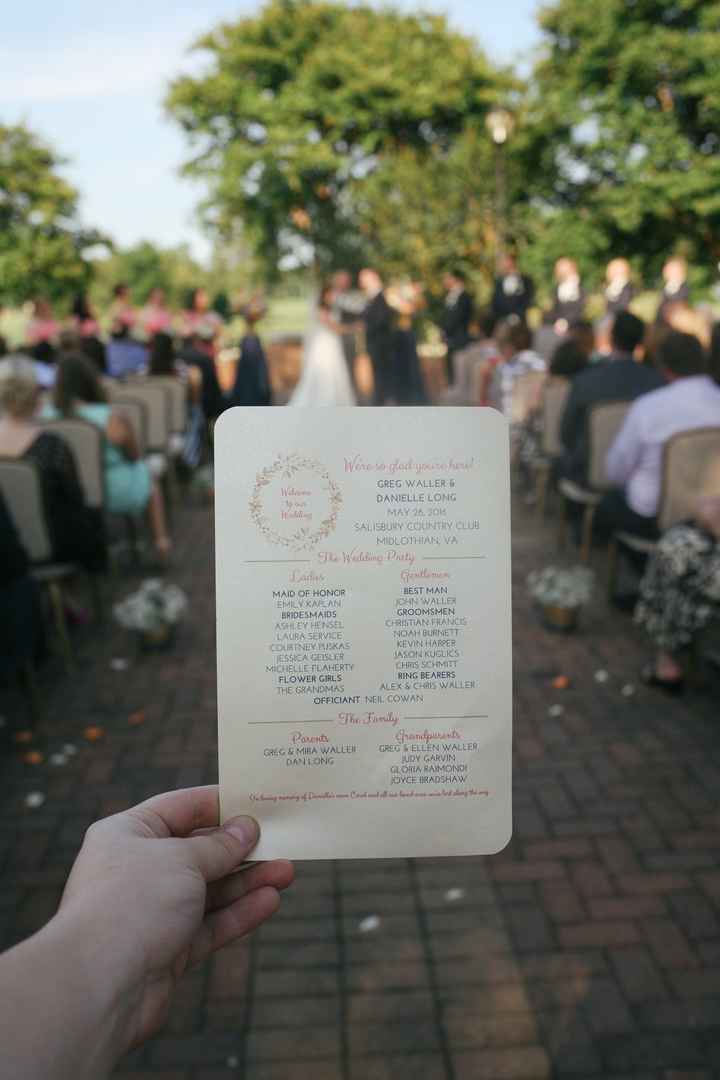 Welcome
to our
Wedding
We're so glad you're here!
GREG WALLER &
DANIELLE LONG
MAY 26, 2016
SALISBURY COUNTRY CLUB
MIDLOTHIAN, VA
The Wedding Party
Ladies
MAID OF HONOR
EMILY KAPLAN
BRIDESMAIDS
ASHLEY HENSEL
LAURA SERVICE
COURTNEY PUSKAS
JESSICA GEISLER
MICHELLE FLAHERTY
FLOWER GIRLS
THE GRANDMAS
Gentlemen
BEST MAN
JOHN WALLER
GROOMSMEN
CHRISTIAN FRANCIS
NOAH BURNETT
KEVIN HARPER
JASON KUGLICS
CHRIS SCHMITT
RING BEARERS
ALEX & CHRIS WALLER
OFFICIANT NEIL COWAN
The Family
Parents
GREG & MIRA WALLER
DAN LONG
Grandparents
GREG & ELLEN WALLER
JUDY GARVIN
GLORIA RAIMONDI
JOYCE BRADSHAW
In loving memory of Danielle's mom Carol and all our loved ones we've lost along the way